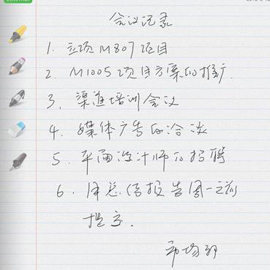 会议记录
1. 立项M807项目
2. M1005项目方案的推广
3. 渠道培训会议
4. 媒体广告的洽谈
5. 平面设计师的招聘
6. 体总结报告周一之前
提交
市场部